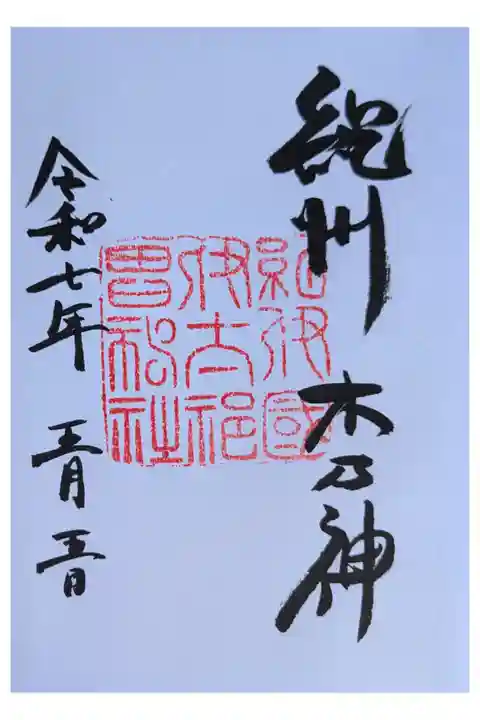 紀州 木乃神
紀伊國
伊太祁
曽神社
令和七年 五月 五日